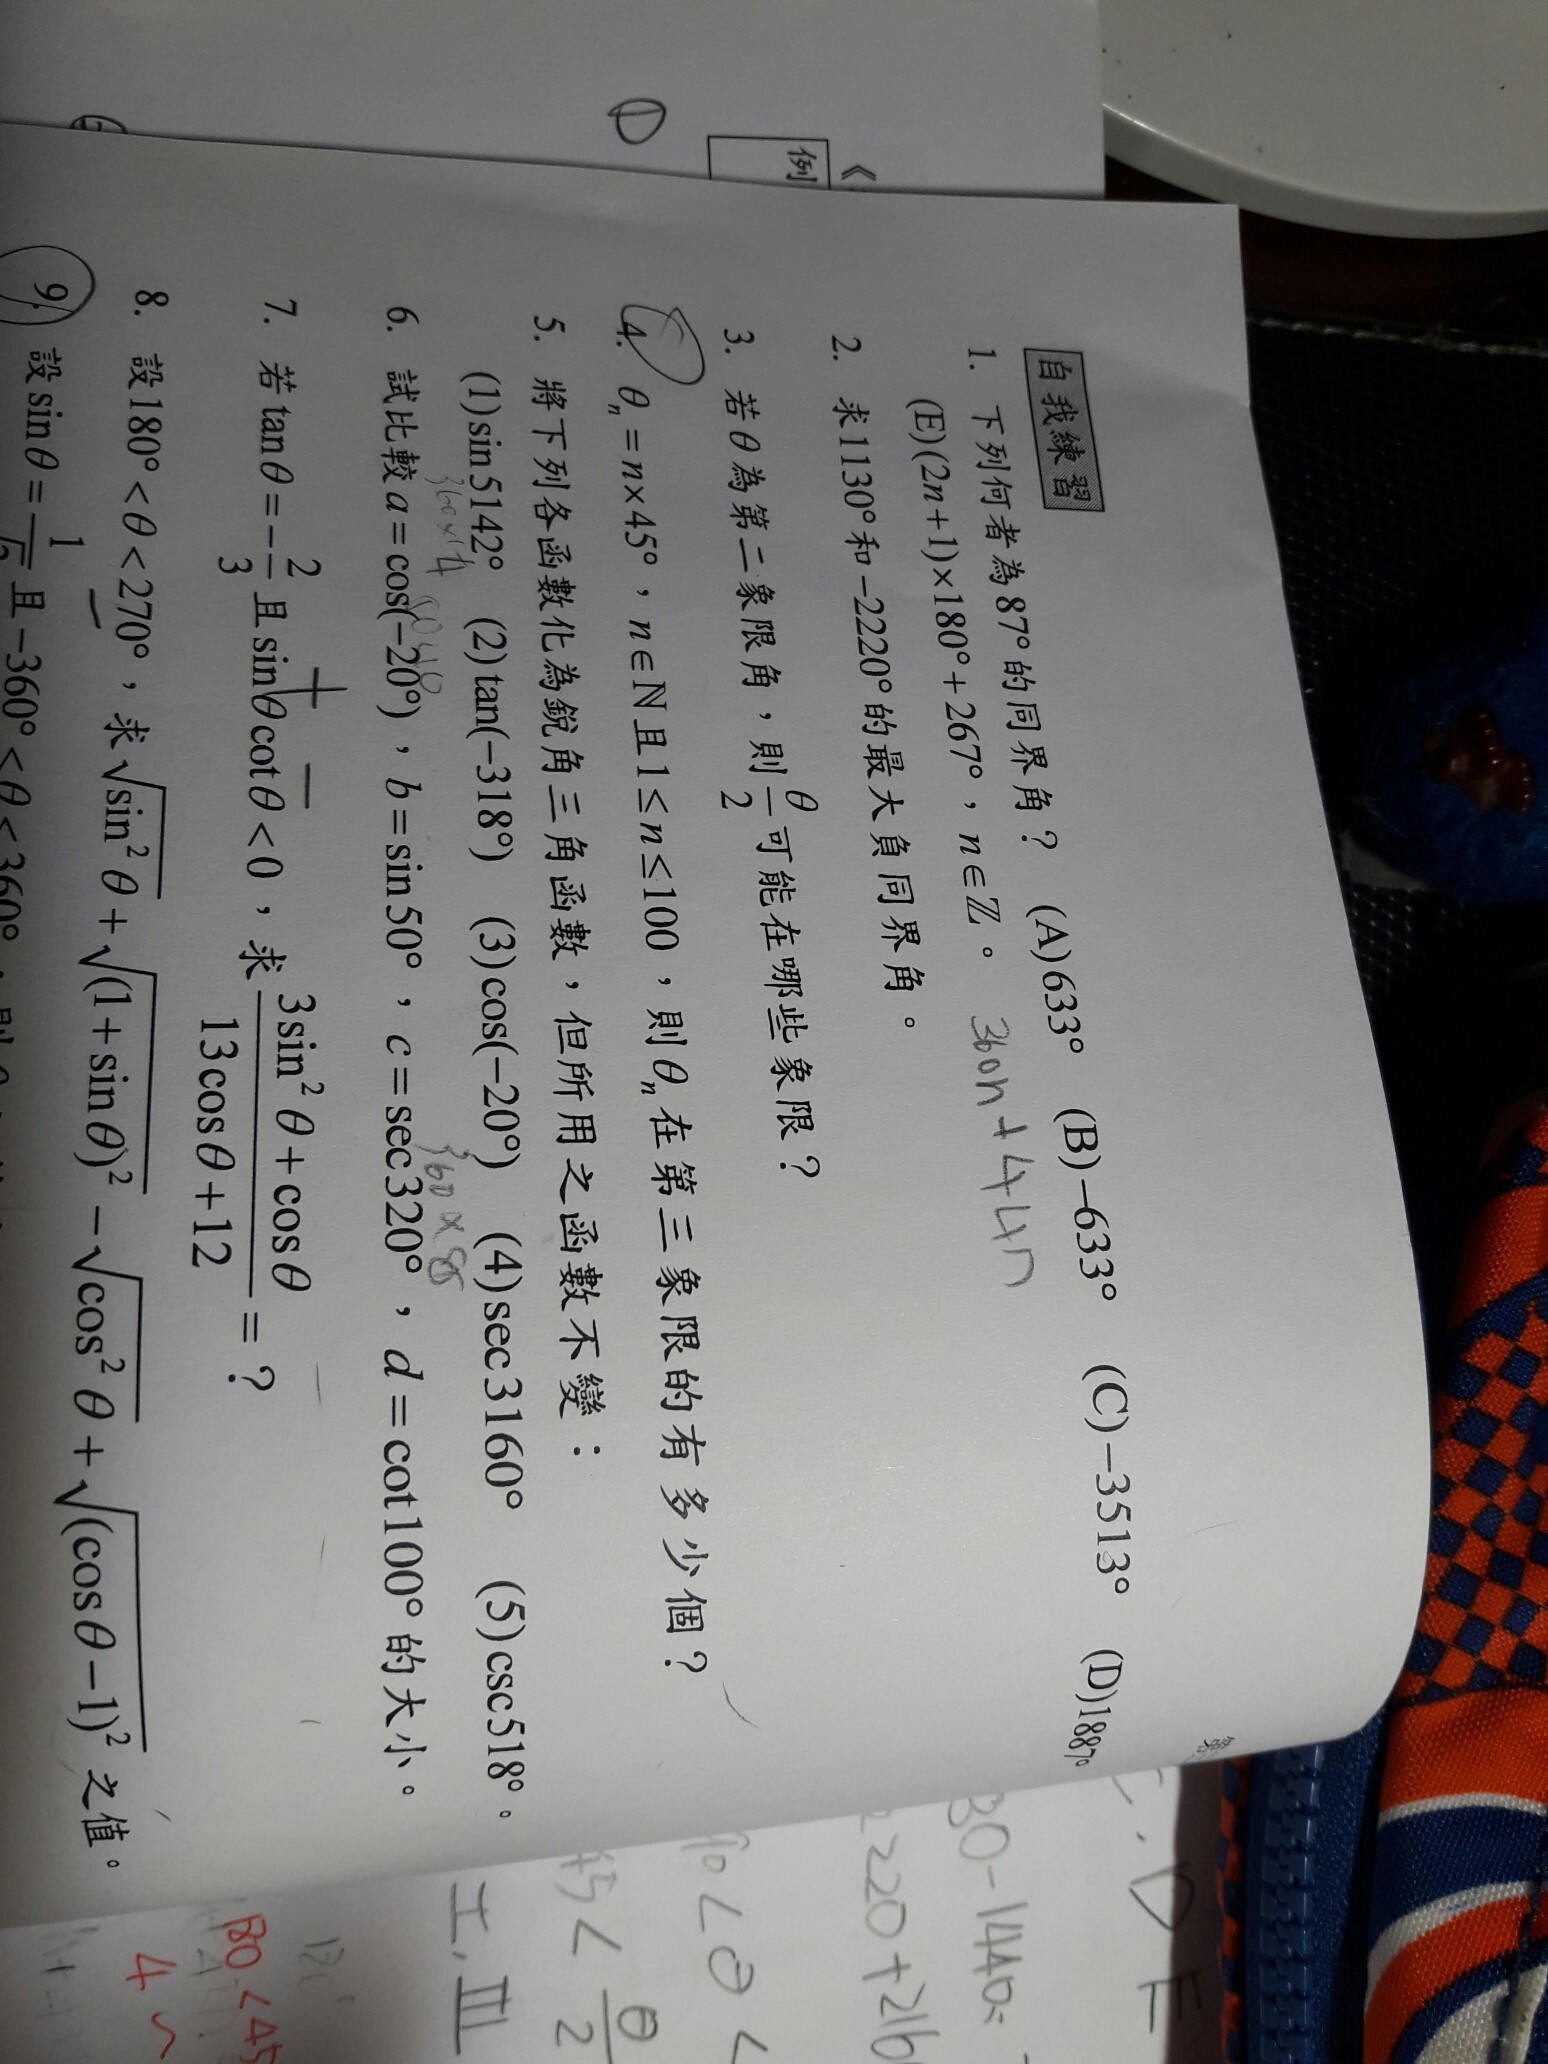 《
例
自我練習
1. 下列何者為87°的同界角? (A)633° (B)−633° (C)−3513° (D)1887°
(E)(2n+1)×180°+267°,n∈ℤ。 360n+447
2. 求1130°和−2220°的最大負同界角。
3. 若θ為第二象限角,則θ/2可能在哪些象限?
4. θₙ=n×45°,n∈ℕ且1≤n≤100,則θₙ在第三象限的有多少個?
5. 將下列各函數化為銳角三角函數,但所用之函數不變:
(1)sin5142° (2)tan(−318°) (3)cos(−20°) (4)sec3160° (5)csc518°。
360×14 360×8
6. 試比較a=cos(−20°),b=sin50°,c=sec320°,d=cot100°的大小。
+ −
7. 若tanθ=−2/3且sinθcotθ<0,求(3sin²θ+cosθ)/(13cosθ+12)=?
8. 設180°<θ<270°,求√sin²θ+√(1+sinθ)²−√cos²θ+√(cosθ−1)²之值。
9. 設sinθ=1/√ 且−360°<θ<360°,則
D E
30-1440=
2220+216
90<θ<
45<θ/2
I, III
180<45
4